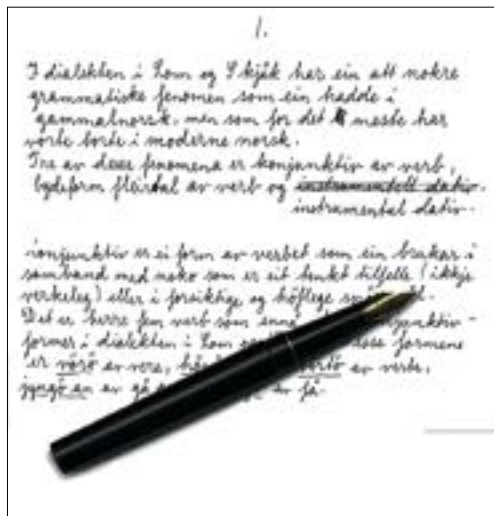 1.
I dialekten i Lom og Skjåk har ein att nokre
grammatiske fenomen som ein hadde i
gammalnorsk, men som for det meste har
vorte borte i moderne norsk.
Tre av desse fenomena er konjunktiv av verb,
bydeform fleirtal av verb og instrumentell dativ.
instrumental dativ.
Konjunktiv er ei form av verbet som ein brukar i
samband med noko som er eit tenkt tilfelle (ikkje
verkeleg) eller i forsiktige og höflege
Det er berre fem verb som enno
former i dialekten i Lom formene
er vörö av vera, av verte,
av gå av få.